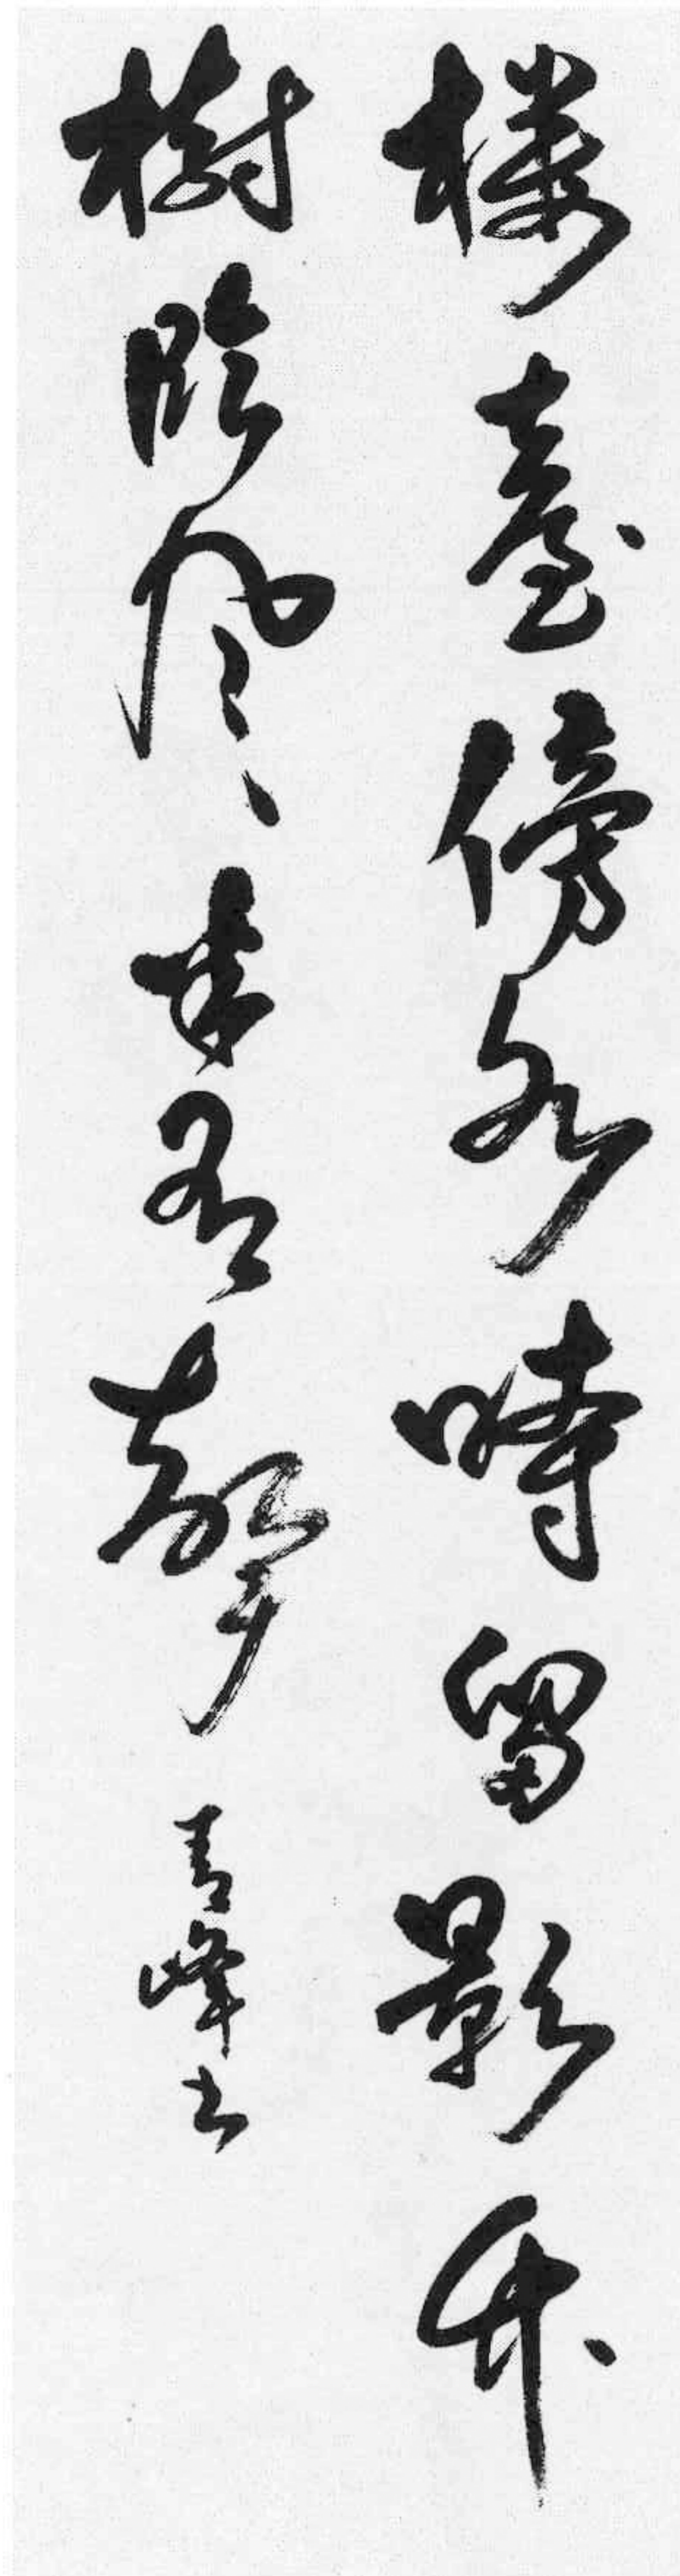 樓臺傍水時留影竹
樹臨風有聲 青峰书